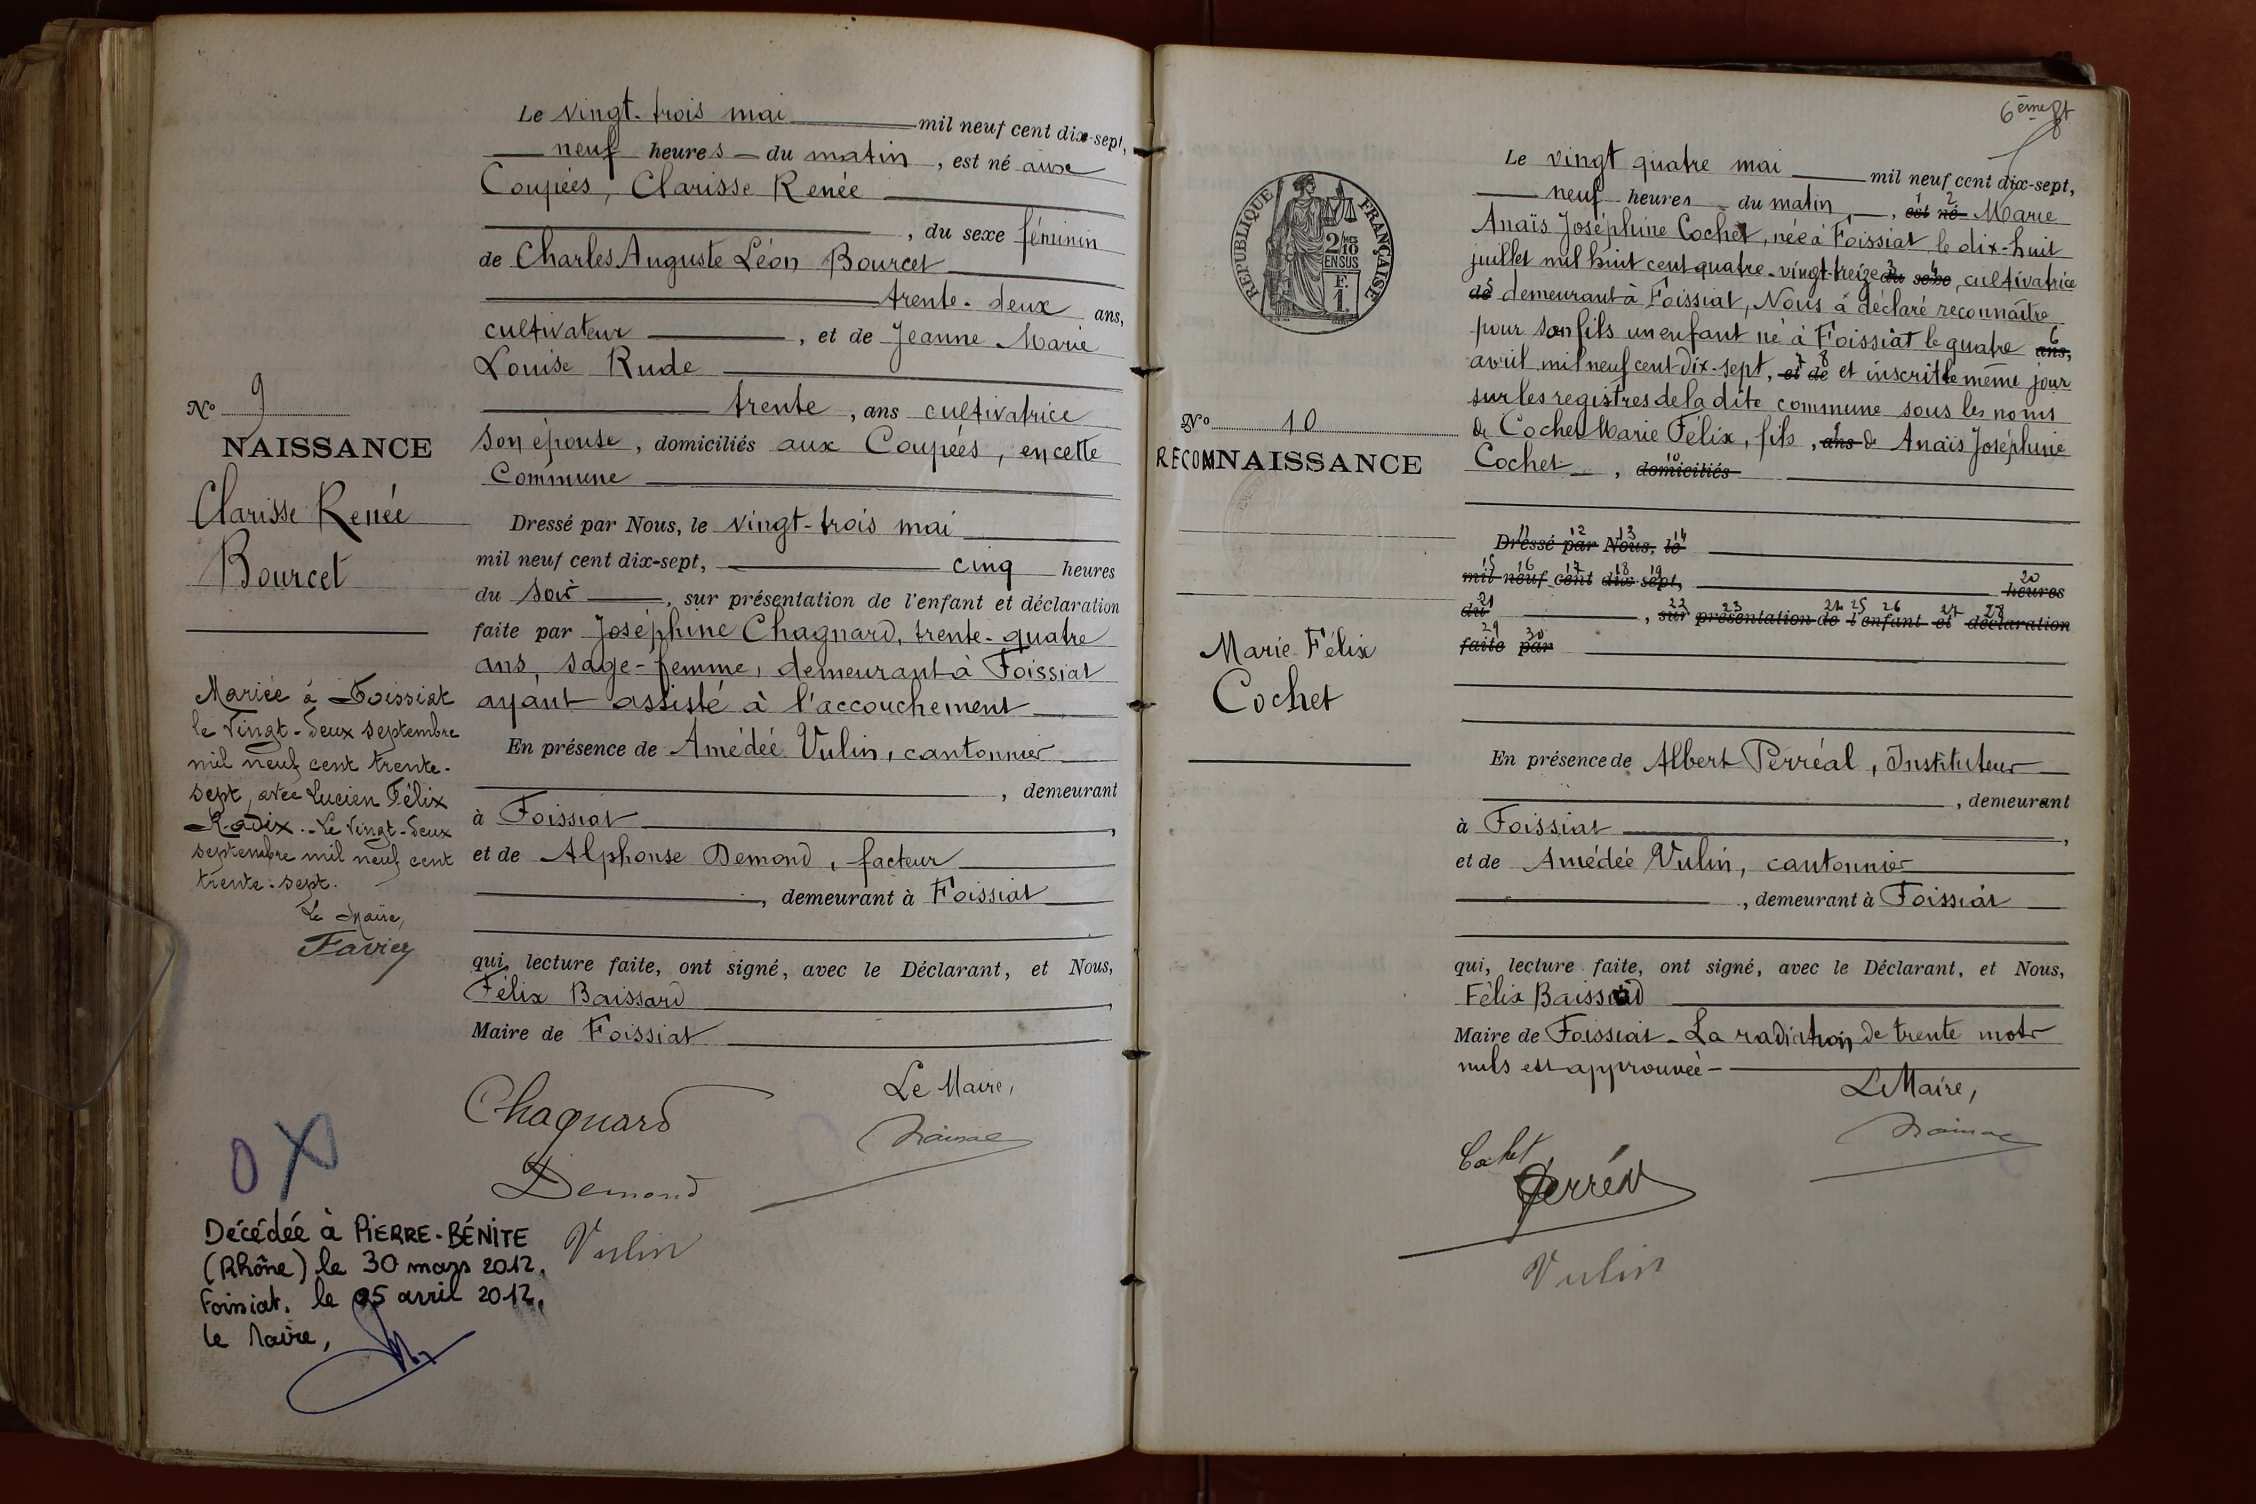 Le vingt-trois mai mil neuf cent dix-sept,
neuf heures du matin, est né aux
Coupées, Clarisse Renée
, du sexe féminin
de Charles Auguste Léon Bourcet
trente-deux ans,
cultivateur, et de Jeanne Marie
Louise Rude
trente, ans cultivatrice
son épouse, domiciliés aux Coupées, en cette
Commune
Dressé par Nous, le vingt-trois mai
mil neuf cent dix-sept, cinq heures
du soir, sur présentation de l'enfant et déclaration
faite par Joséphine Chagnard, trente-quatre
ans, sage-femme, demeurant à Foissiat
ayant assisté à l'accouchement
En présence de Amédée Vulin, cantonnier
, demeurant
à Foissiat,
et de Alphonse Demond, facteur
, demeurant à Foissiat
qui, lecture faite, ont signé, avec le Déclarant, et Nous,
Félix Baissard,
Maire de Foissiat
Le Maire,
Chagnard
Demond
Vulin
No 9
NAISSANCE
Clarisse Renée
Bourcet
Mariée à Foissiat
le vingt-deux septembre
mil neuf cent trente-
sept, avec Lucien Félix
Radix. - Le vingt-deux
septembre mil neuf cent
trente-sept.
Le Maire,
Favier
OX
Décédée à PIERRE-BÉNITE
(Rhône) le 30 mars 2012.
Foissiat, le 05 avril 2012,
le Maire,
6ème ft
RÉPUBLIQUE FRANÇAISE
2/10
EN SUS
F.
1.
No 10
RECONNAISSANCE
Marie Félix
Cochet
Le vingt quatre mai mil neuf cent dix-sept,
1 2
neuf heures du matin, est né Marie
Anaïs Joséphine Cochet, née à Foissiat le dix-huit
3 4
juillet mil huit cent quatre-vingt-treize du sexe, cultivatrice
5
de demeurant à Foissiat, Nous a déclaré reconnaître
6
pour son fils un enfant né à Foissiat le quatre ans,
7 8
avril mil neuf cent dix-sept, et de et inscrit le même jour
sur les registres de la dite commune sous les noms
9
de Cochet Marie Félix, fils, ans de Anaïs Joséphine
10
Cochet, domiciliés
11 12 13 14
Dressé par Nous, le
15 16 17 18 19 20
mil neuf cent dix-sept, heures
21 22 23 24 25 26 27 28
du, sur présentation de l'enfant et déclaration
29 30
faite par
En présence de Albert Perréal, Instituteur
, demeurant
à Foissiat,
et de Amédée Vulin, cantonnier
, demeurant à Foissiat
qui, lecture faite, ont signé, avec le Déclarant, et Nous,
Félix Baissard
Maire de Foissiat - La radiation de trente mots
nuls est approuvée -
Le Maire,
Cochet
Perréal
Vulin